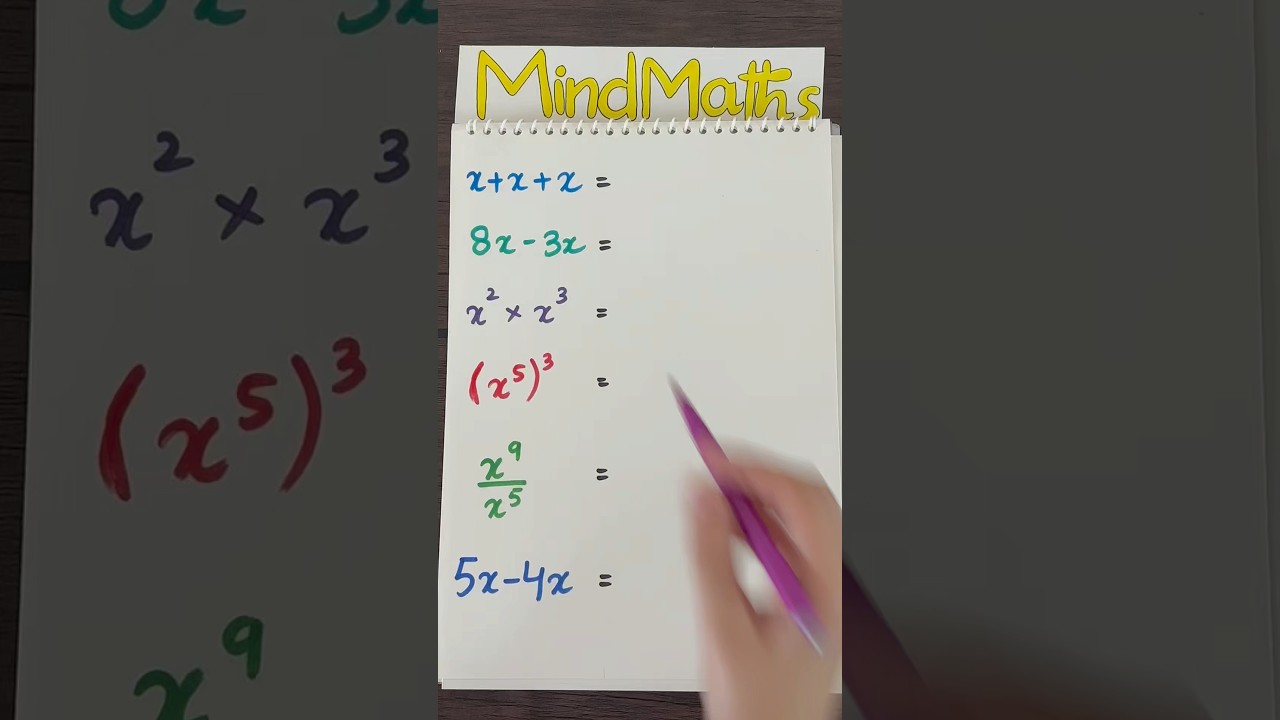 MindMaths
x+x+x =
8x-3x =
x² × x³ =
(x⁵)³ =
x⁹
x⁵ =
5x-4x =